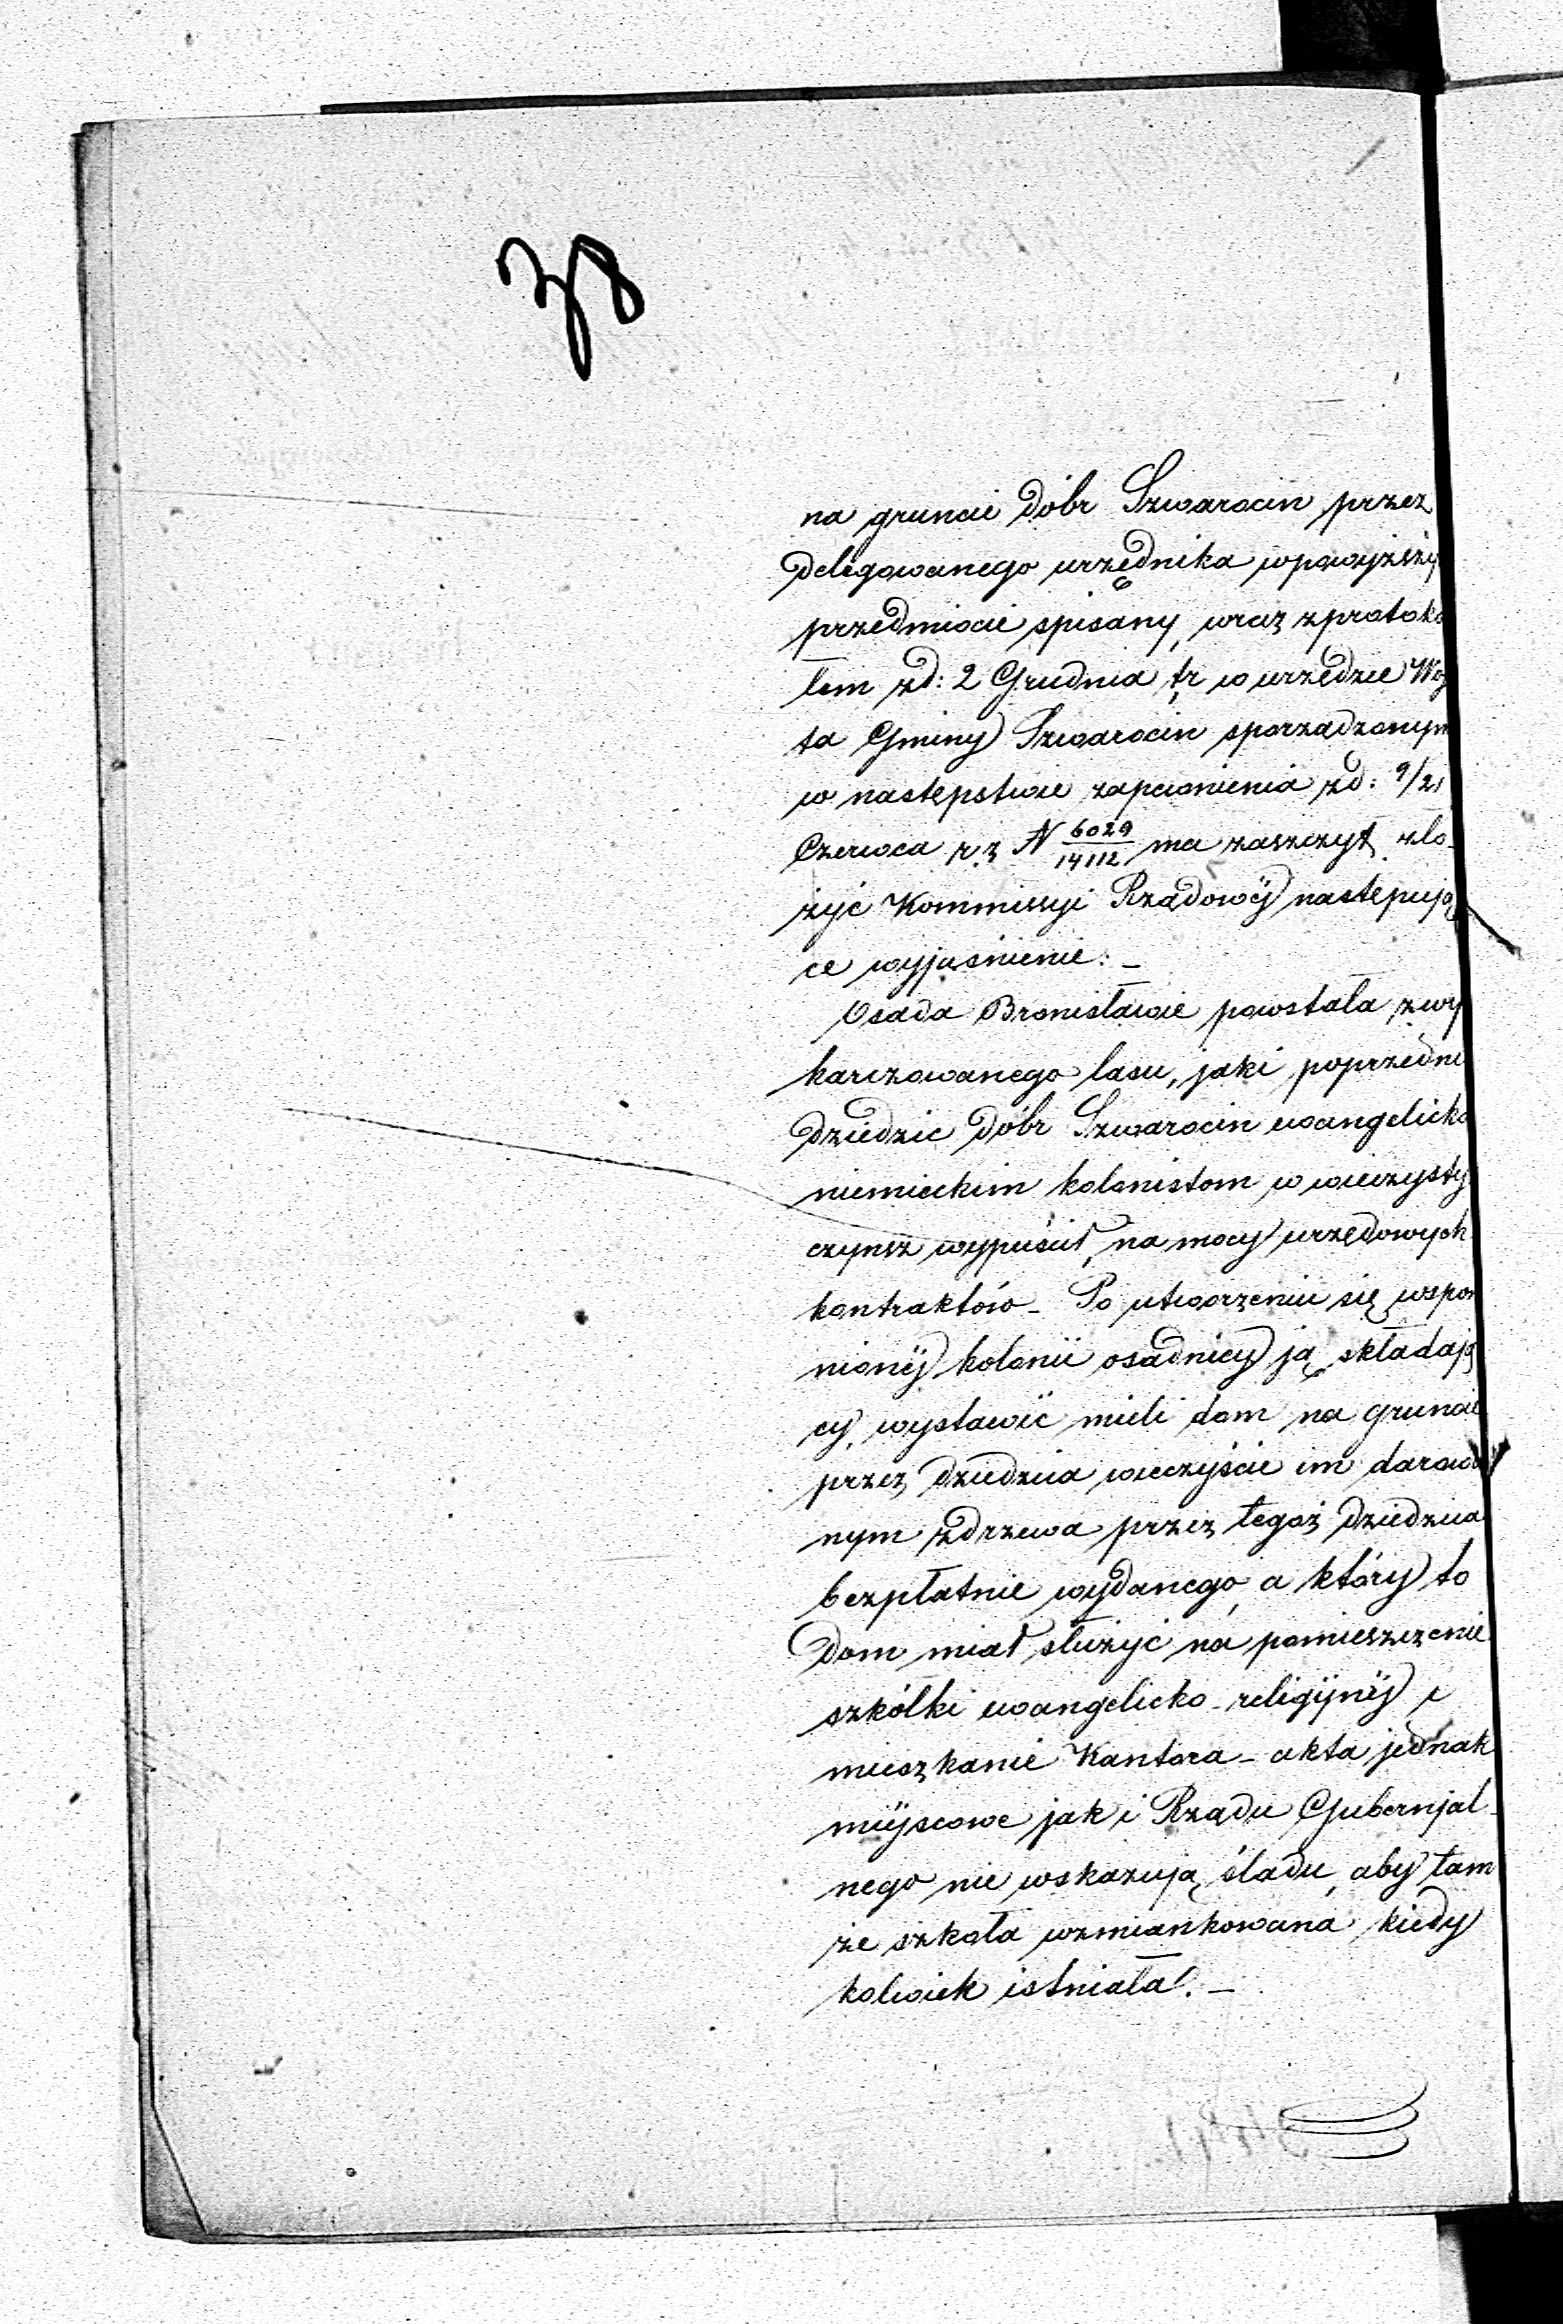 38
na gruncie dóbr Szwarocin przez
delegowanego urzędnika w powyższy
przedmiocie spisany, wraz z protokó
łem z d: 2 Grudnia t,r w urzędzie Wój
ta Gminy Szwarocin sporządzonym
w następstwie zapewnienia z d: 9/21
Czerwca r.z N 6029/14112 ma zaszczyt zło-
żyć Kommissyi Rządowéj następują
ce wyjaśnienie: -
Osada Bronisławie powstała z wy
karczowanego lasu, jaki poprzedni
dziedzic dóbr Szwarocin ewangelicko
niemieckim kolonistom w wieczysty
czynsz wypuścił, na mocy urzędowych
kontraktów - Po utworzeniu się wspom
nionéj kolonii osadnicy ją składają
cy, wystawić mieli dom na gruncie
przez dziedzica wieczyście im darowa
nym z drzewa przez tegoż dziedzica
bezpłatnie wydanego, a który to
dom miał służyć na pomieszczenie
szkółki ewangelicko-religijnéj i
mieszkanie Kantora - akta jednak
miéjscowe jak i Rządu Gubernjal-
nego nie wskazują śladu, aby tam
że szkoła wzmiankowana kiedy
kolwiek istniała. -